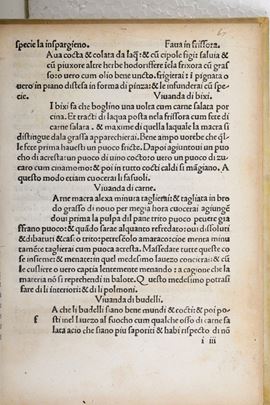 specie la inspargieno. Faua in frissora.
A ua cocta & colata da laq̃: & cũ cipole figi: saluia & cũ piuxore altre herbe hodorifere i ela frixora cũ gras so: o uero cum olio bene uncto. frigirai: i pignata o uero in piano distesa in forma di pinza: & le infunderai cũ spe cie.
Viuanda di bixi.
I bixi fa che boglino una uolta cum carne salata por cina. Et tracti di laqua posta nela frissora cum fete di carne salata. & maxime di quella laquale la macra si distingue dala grassa apparechierai. Bene ampo uorebe che q̃l le fete prima hauesti un puoco fricte. Dapoi agiuntoui un puo cho di acresta: un puoco di uino cocto: o uero un puoco di zu caro cum cinamomo: & poi in tutto cocti caldi si mãgiano. A questo modo etiam cuocerai li fasioli.
Viuanda di carne.
A rne macra alexa minuta tagliarai: & tagliata in bro do grasso di nouo per megia hora cuocerai agiungẽ doui prima la pulpa dil pane trito puoco peuere gia ffrano puoco: & quãdo sarae alquanto refredato: oui dissoluti & dibatuti & caso trito: petrosẽolo amaraco: cioe menta minu tamente tagliarai cum puoca acresta. Massedate tutte queste co se insieme: & menate: in quel medesimo lauezo concirai: & cũ le cusliere o uero captia lentemente menando: a cagione che la materia nõ si reprehendi in balote. Questo medesimo potrasi fare di li interiori: & di li polmoni.
Viuanda di budelli.
A che li budelli siano bene mundi & cocti: & poi po
f sti nel lauezo al fuocho cum qualche osso di carne sa lata acio che siano piu saporiti & habi rispecto di nõ
i iii